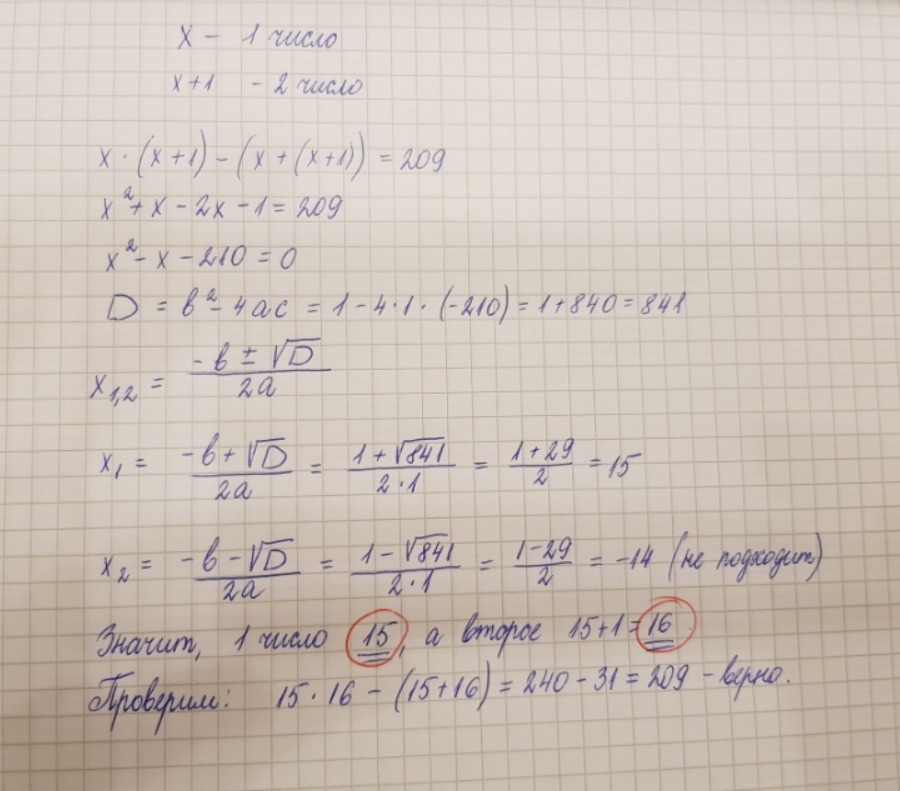 x - 1 число
x+1 - 2 число
x · (x+1) - (x + (x+1)) = 209
x² + x - 2x - 1 = 209
x² - x - 210 = 0
D = b² - 4ac = 1 - 4·1·(-210) = 1 + 840 = 841
x₁,₂ = (-b ± √D)/(2a)
x₁ = (-b + √D)/(2a) = (1 + √841)/(2·1) = (1 + 29)/2 = 15
x₂ = (-b - √D)/(2a) = (1 - √841)/(2·1) = (1 - 29)/2 = -14 (не подходит)
Значит, 1 число 15, а второе 15+1=16.
Проверим: 15·16 - (15+16) = 240 - 31 = 209 - верно.